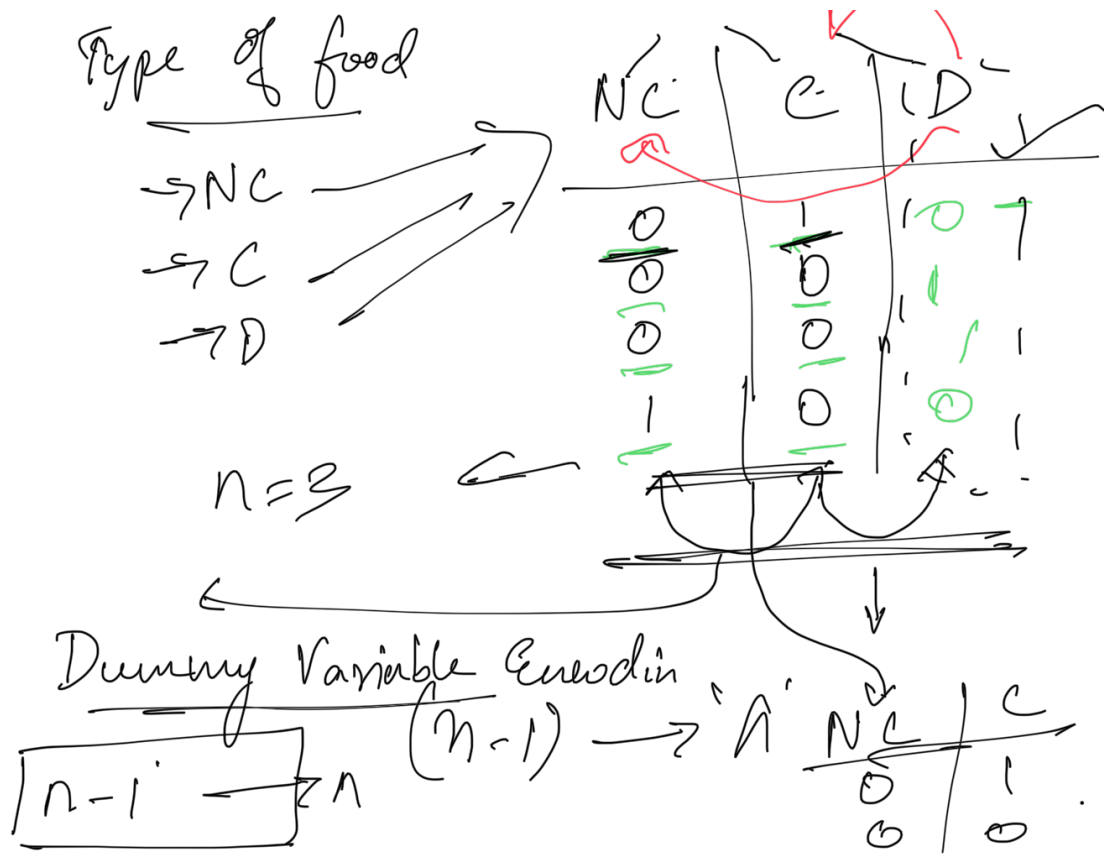 Type of food
→ NC
→ C
→ D
n = 3
NC C D
0 1 0 1
0 0 1
0 0 1 1
1 0 0 1
Dummy Variable Encodin
(n-1) → 'n'
n-1 ← n
NC C
0 1
0 0